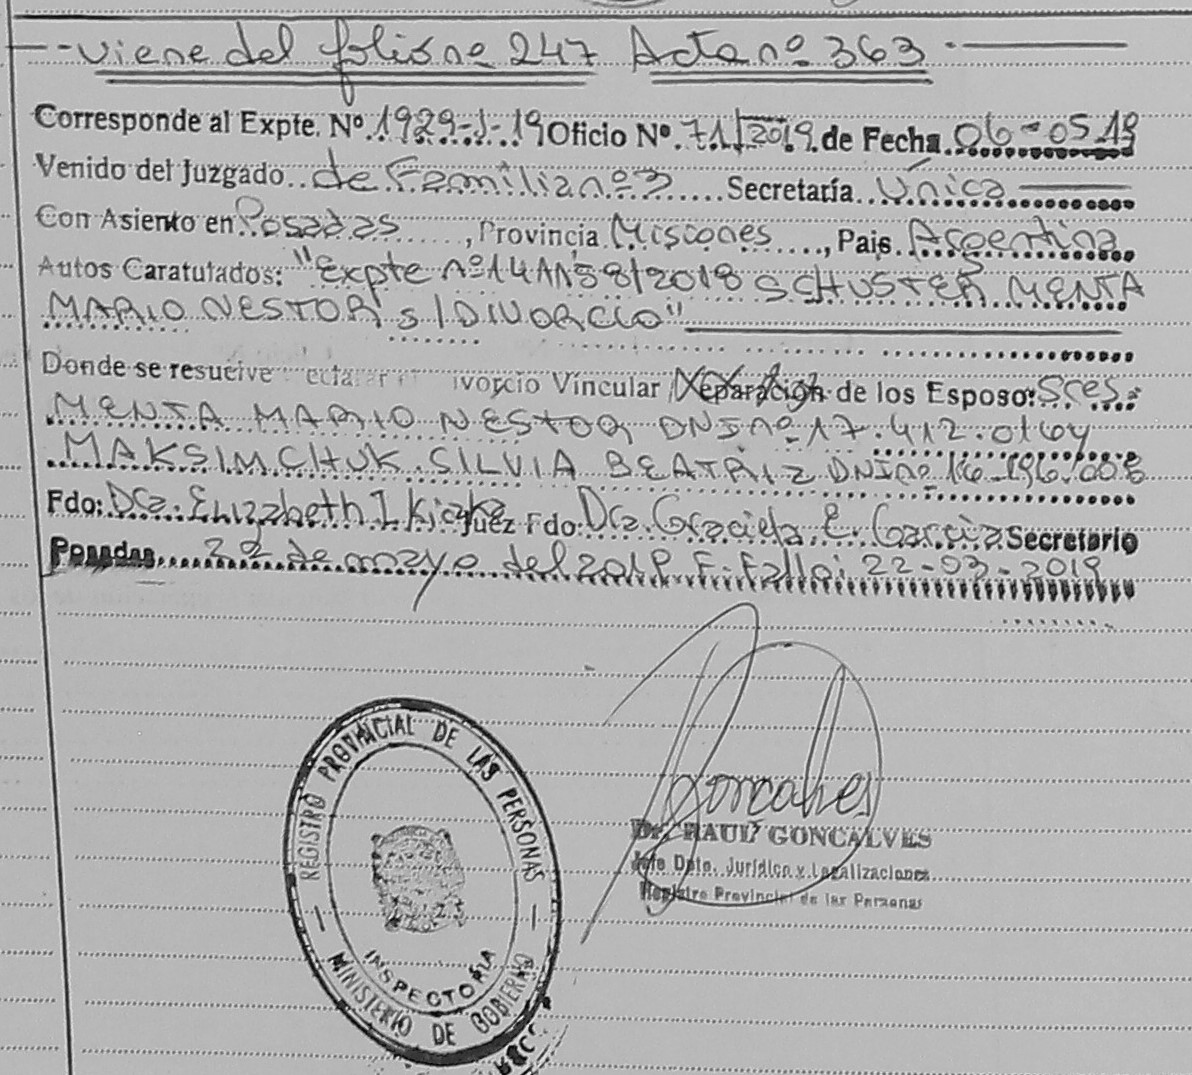 - - viene del folio nº 247 Acta nº 363 -
Corresponde al Expte. Nº 1929-J-19 Oficio Nº 71/2019 de Fecha 06-05 19
Venido del Juzgado de Familia nº 3 Secretaría Única
Con Asiento en Posadas, Provincia Misiones, Pais Argentina
Autos Caratulados: "Expte nº 141158/2018 SCHUSTER MENTA
MARIO NESTOR s/DIVORCIO"
Donde se resuelve Vincular de los Esposo: Sres.
MENTA MARIO NESTOR DNI nº 17.412.
MAKSIMCHUK SILVIA BEATRIZ DNI nº
Fdo: Dra. Elizabeth I Juez Fdo: Dra. Graciela E. Garcia Secretario
Posadas, 22 de mayo del F. Fallo: 22-03-2019
Goncalves
Dr. RAUL GONCALVES
Jefe Dpto. Jurídico y Legalizaciones
Registro Provincial de las Personas
REGISTRO PROVINCIAL DE LAS PERSONAS
INSPECTORIA
MINISTERIO DE GOBIERNO